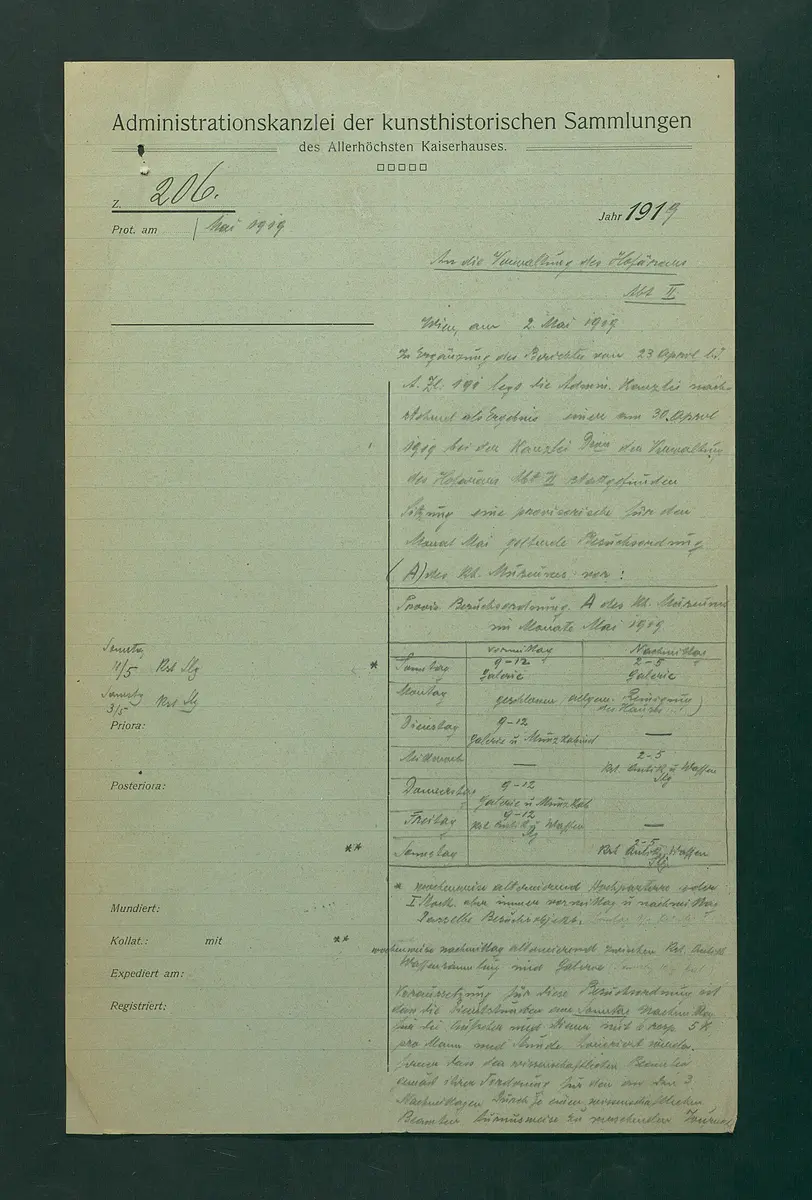 Administrationskanzlei der kunsthistorischen Sammlungen
des Allerhöchsten Kaiserhauses.
Z. 206.
Jahr 1919
Prot. am 1 Mai 1919
An die Verwaltung des Hofärars
Abt II
Wien, am 2. Mai 1919
In Ergänzung des Berichtes vom 23 April
A. Zl. 191 legt die Admin. Kanzlei nach-
stehend als Ergebnis einer am 30. April
1919 bei der Kanzlei der Verwaltung
des Hofärars Abt II stattgefunden
Sitzung eine provisorische für den
Monat Mai geltende Besuchsordnung
(A) des kh. Museums vor:
Provis Besuchsordnung A des kh. Museums
im Monate Mai 1919
vormittag Nachmittag
* Sonntag 9-12 Galerie 2-5 Galerie
Montag geschlossen (allgem. Reinigung des Hauses)
Dienstag 9-12 Galerie u Münzkabinet —
Mittwoch — 2-5 Kst. Antik. u Waffen Slg
Donnerstag 9-12 Galerie u Münzkab
Freitag 9-12 Kst. Antik u Waffen Slg —
** Samstag 2-5 Kst Antik. Waffen Slg
Sonntag
4/5 Kst Slg
Samstg
3/5 Kst Slg
Priora:
Posteriora:
Mundiert:
Kollat.: mit
Expediert am:
Registriert:
* wochenweise alternierend Hochparterre oder
I Stock aber immer vormittag u nachmittag
Dasselbe Besuchsobjekt.
** wochenweise nachmittag alternierend zwischen Kst. Antik
Waffensammlung und Galerie
Voraussetzung für diese Besuchsordnung ist
dass die Dienststunden am Samstag Nachmittag
für die Aufseher und Diener mit 6 resp 5 K
pro Mann und Stunde honoriert werden.
ferner dass den wissenschaftlichen Beamten
gemäß ihrer Forderung für den an den 3
Nachmittagen durch je einen wissenschaftlichen
Beamten turnusweise zu versehenden Journal